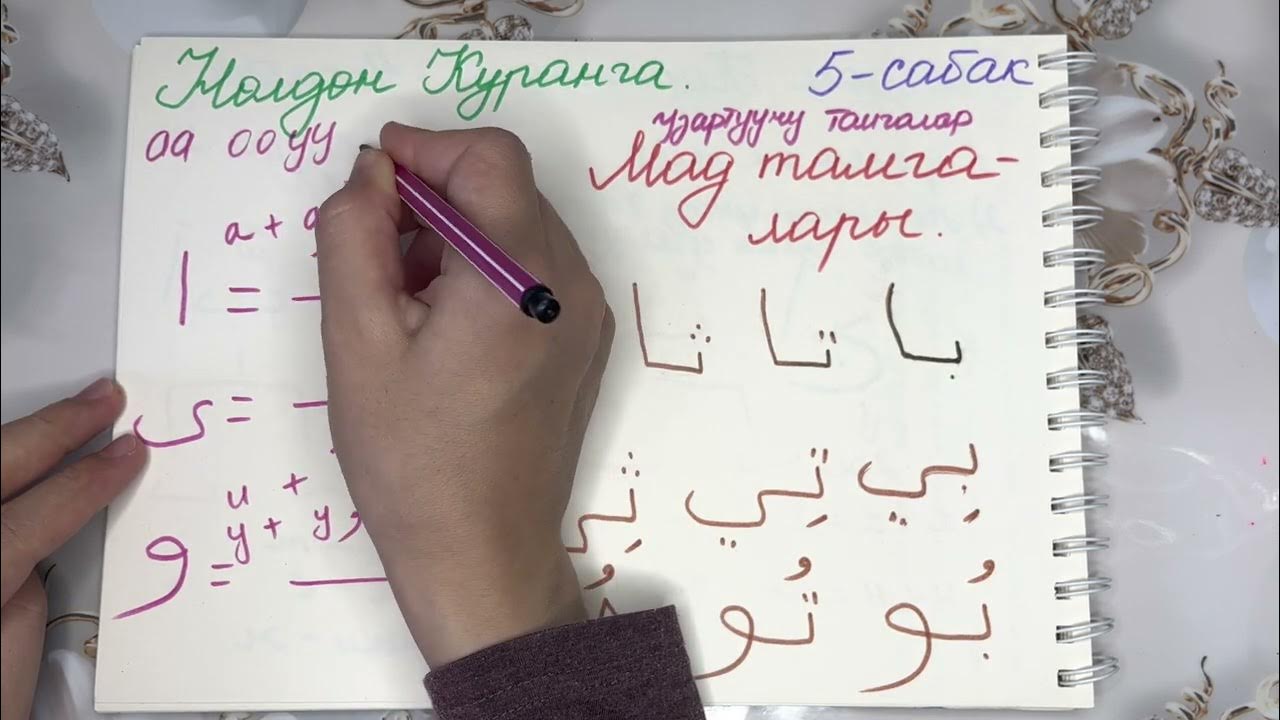 Нолдон Куранга. 5-сабак
аа оо уу
узартуучу тамгалар
Мад тамга-
лары.
а +
ا =
ى =
и +
у + у
و =
با تا ثا
بِي تِي ثِي
بُو تُو